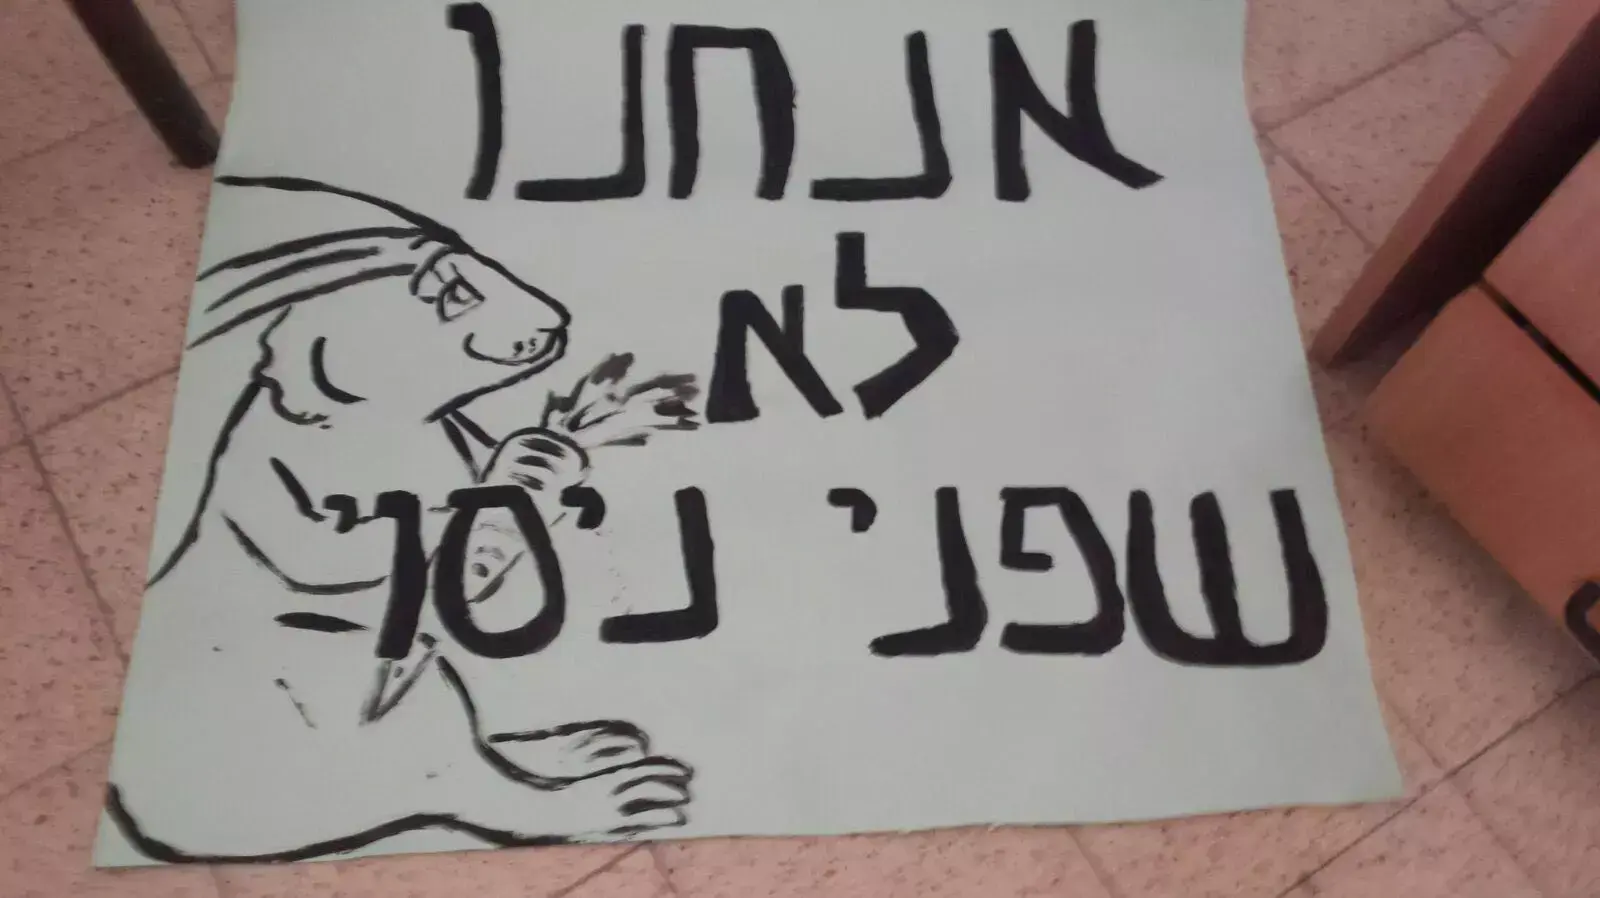 אנחנו
לא
שפני ניסוי